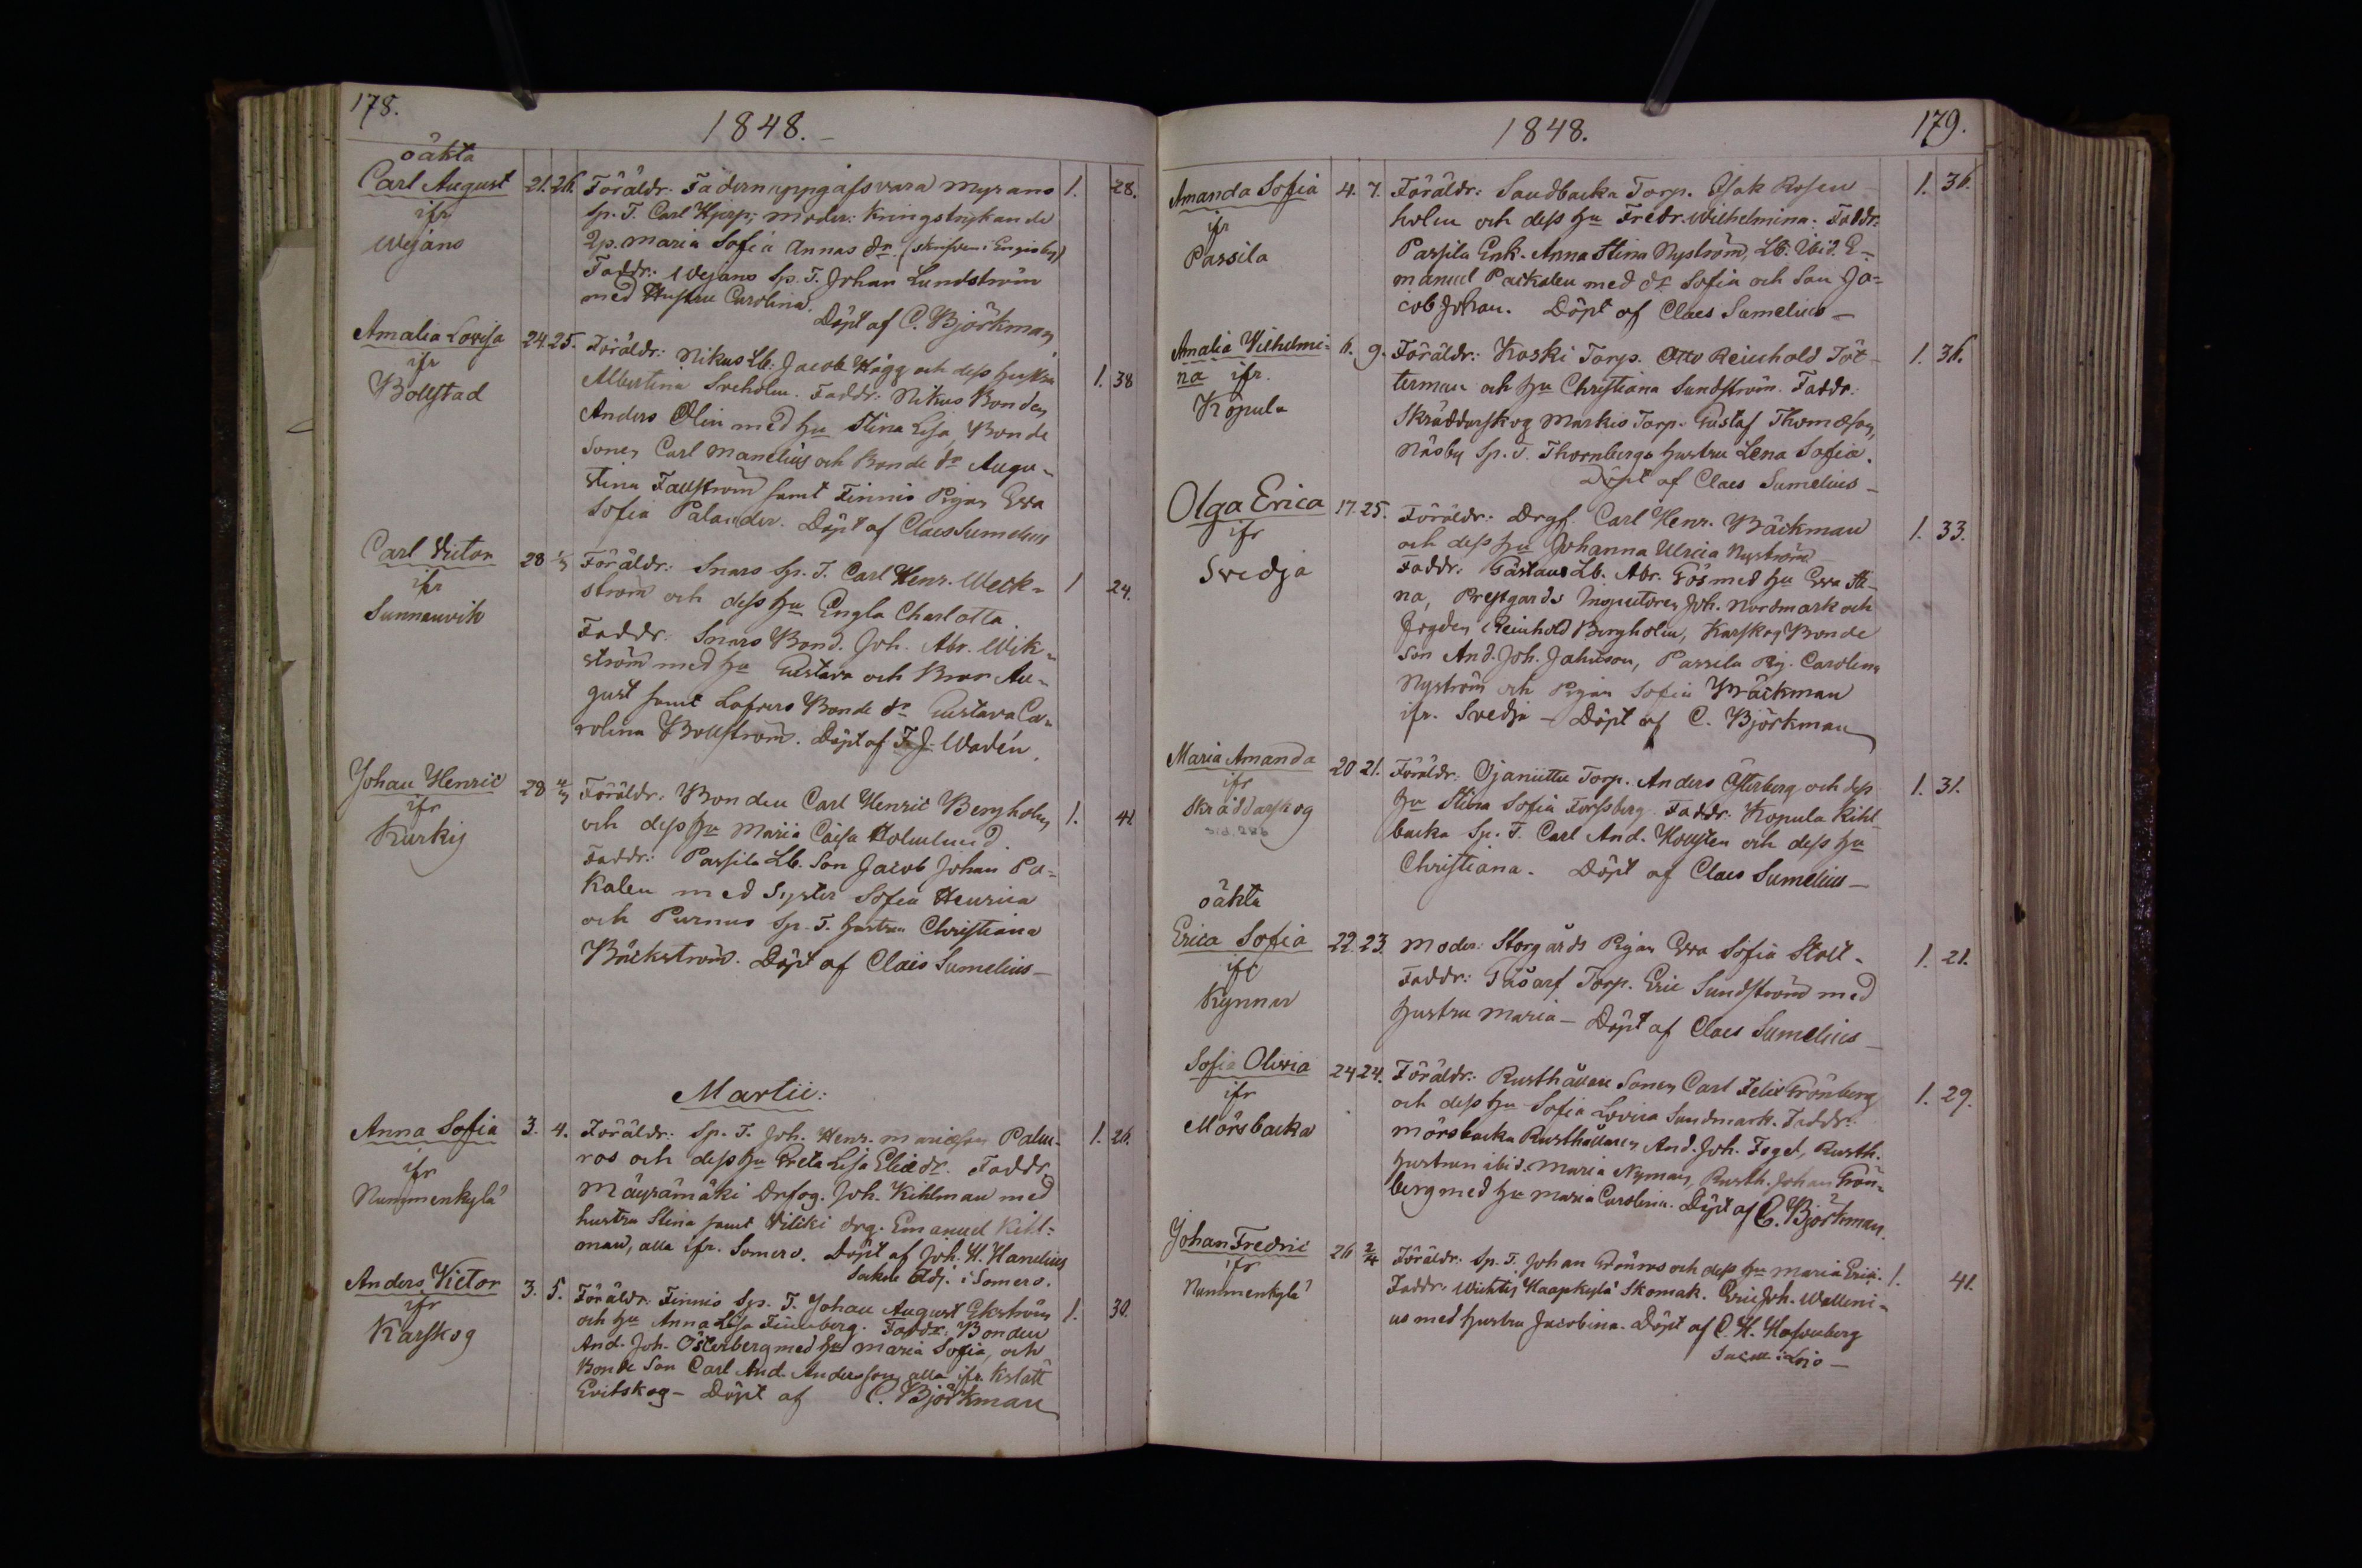 178.
1848.
oäkta
Carl August
ifr
Wejans
21. 26.
Föräldr: Fadern uppgafs vara Myrans
Sp. T. Carl Hjerp; moder: Kringstrykande
Qp. Maria Sofia Annas dr. (skrifven i Engisby)
Faddr: Wejans Sp. T. Johan Lundström
med Hustru Carolina.
Döpt af C. Björkman
1. 28.
Amalia Lovisa
ifr
Bollstad
24. 25.
Föräldr: Nikus Lb. Jacob Hägg och dess hustru
Albertina Sveholm. Faddr: Nikus Bonden
Anders Olin med hu Stina Lisa, Bonde
Sonen Carl Manelius och Bonde dr Augu-
stina Fallström samt Finnis Pigan Eva
Sofia Palander. Döpt af Claes Sumelius
1. 38
Carl Victor
ifr
Sunnanvik
28 1/3
Föräldr: Snars Sp. T. Carl Henr. Weck-
ström och dess hu Engla Charlotta.
Faddr: Snars Bond. Joh. Abr. Wik-
ström med hu Gustava och Bror Au-
gust samt Lafvers Bonde dr Gustava Ca-
rolina Bollström. Döpt af F. J. Wadén.
1 24.
Johan Henric
ifr
Kurkis
29 4/3
Föräldr. Bonden Carl Henric Bergholm
och dess hu Maria Caisa Holmlund.
Faddr: Passila Lb. Son Jacob Johan Pa-
kalen med Syster Sofia Henrica
och Purnus Sp. T. hustru Christiana
Bäckström. Döpt af Claes Sumelius
1. 41
Martii:
Anna Sofia
ifr
Nummenkylä
3. 4.
Föräldr: Sp. T. Joh. Henr. Mariæson Palm-
ros och dess hu Greta Lisa Eliædr. Faddr.
Mäyrämäki Drfog. Joh. Kihlman med
hustru Stina samt Viliki drg. Emanuel Kihl-
man, alla ifr. Somero. Döpt af Joh. H. Hanelius
Sockne Adj. i Somero.
1. 26.
Anders Victor
ifr
Karskog
3. 5.
Föräldr: Finnis Sp. T. Johan August Ekström
och hu Anna Lisa Finnberg. Faddr: Bonden
And. Joh. Österberg med hu Maria Sofia, och
Bonde Son Carl And. Andersson, alla ifr. Kslätt
Evitskog - Döpt af C. Björkman
1. 30.
1848.
179.
Amanda Sofia
ifr
Passila
4. 7.
Föräldr: Sandbacka Torp. Isak Rosen-
holm och dess hu Fredr. Wilhelmina. Faddr:
Passila Enk. Anna Stina Nyström, Lb. Ibid. E-
manuel Packalen med dr Sofia och Son Ja-
cob Johan. Döpt af Claes Sumelius
1. 36.
Amalia Wilhelmi-
na ifr.
Köpula
6. 9.
Föräldr: Koski Torp. Otto Reinhold Töt-
terman och hu Christiana Sundström. Faddr:
Skräddarskog Markis Torp. Gustaf Thomæson,
Näsby Sp. T. Thornbergs hustru Lena Sofia.
Döpt af Claes Sumelius
1. 36.
Olga Erica
ifr
Svedja
17. 25.
Föräldr: Drgf. Carl Henr. Bäckman
och dess hu Johanna Ulrica Nyström
Faddr: Gästans Lb. Abr. Gös med hu Eva Sti-
na, Prestgårds Inspectoren Joh. Nordmark och
Fogden Reinhold Bergholm, Karskog Bonde
Son And. Joh. Jahnson, Passila Pig. Carolina
Nyström och Pigan Sofia Bäckman
ifr. Svedja - Döpt af C. Björkman
1. 33.
Maria Amanda
ifr
Skräddarskog
20 21.
Föräldr: Ojaniittu Torp. Anders Österberg och dess
hu Stina Sofia Forssberg. Faddr: Kopula Kihl-
backa Sp. T. Carl And. Hollsten och dess hu
Christiana. Döpt af Claes Sumelius
1. 31.
oäkta
Erica Sofia
ifr
Kynnar
22. 23.
Moder: Storgårds Pigan Eva Sofia Stolt.
Faddr: Gåsarf Torp. Eric Sundström med
hustru Maria - Döpt af Claes Sumelius
1. 21.
Sofia Olivia
ifr
Mörsbacka
24 24.
Föräldr: Rusthållare Sonen Carl Felix Grönberg
och dess hu Sofia Lovisa Sandmark. Faddr:
Mörsbacka Rusthållaren And. Joh. Fogel, Rusth.
hustrun ibid. Maria Nyman, Rusth. Johan Grön-
berg med hu Maria Carolina. Döpt af C. Björkman.
1. 29.
Johan Fredric
ifr
Nummenkylä
26 2/4
Föräldr: Sp. T. Johan Grönroos och dess hu Maria Erici.
Faddr: Wichtis Haapkylä Skomak. Eric Joh. Walleni-
us med hustru Jacobina. Döpt af C. H. Hasenberg
Sacell. i Lojo
1. 41.